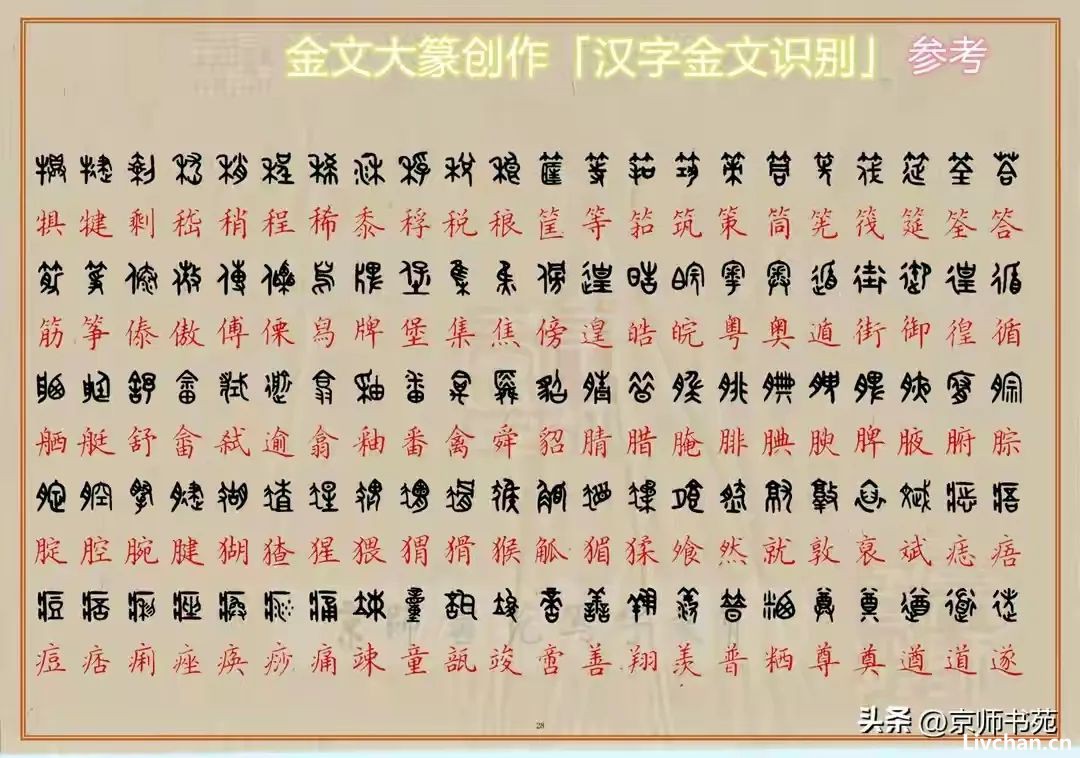 金文大篆创作「汉字金文识别」 参考
犋 犍 剩 嵇 稍 程 稀 黍 稃 税 稂 筐 等 筘 筑 策 筒 筅 筏 筵 筌 答
筋 筝 傣 傲 傅 傈 舄 牌 堡 集 焦 傍 遑 皓 皖 粤 奥 遁 街 御 徨 循
舾 艇 舒 畲 弑 逾 翕 釉 番 禽 舜 貂 腈 腊 腌 腓 腆 腴 脾 腋 腑 腙
腚 腔 腕 腱 猢 猹 猩 猥 猬 猾 猴 觚 猸 猱 飧 然 就 敦 裒 斌 痣 痦
痘 痞 痢 痤 痪 痧 痛 竦 童 瓿 竣 啻 善 翔 羡 普 粞 尊 奠 遒 道 遂
28
头条 @京师书苑
Livchan.cn